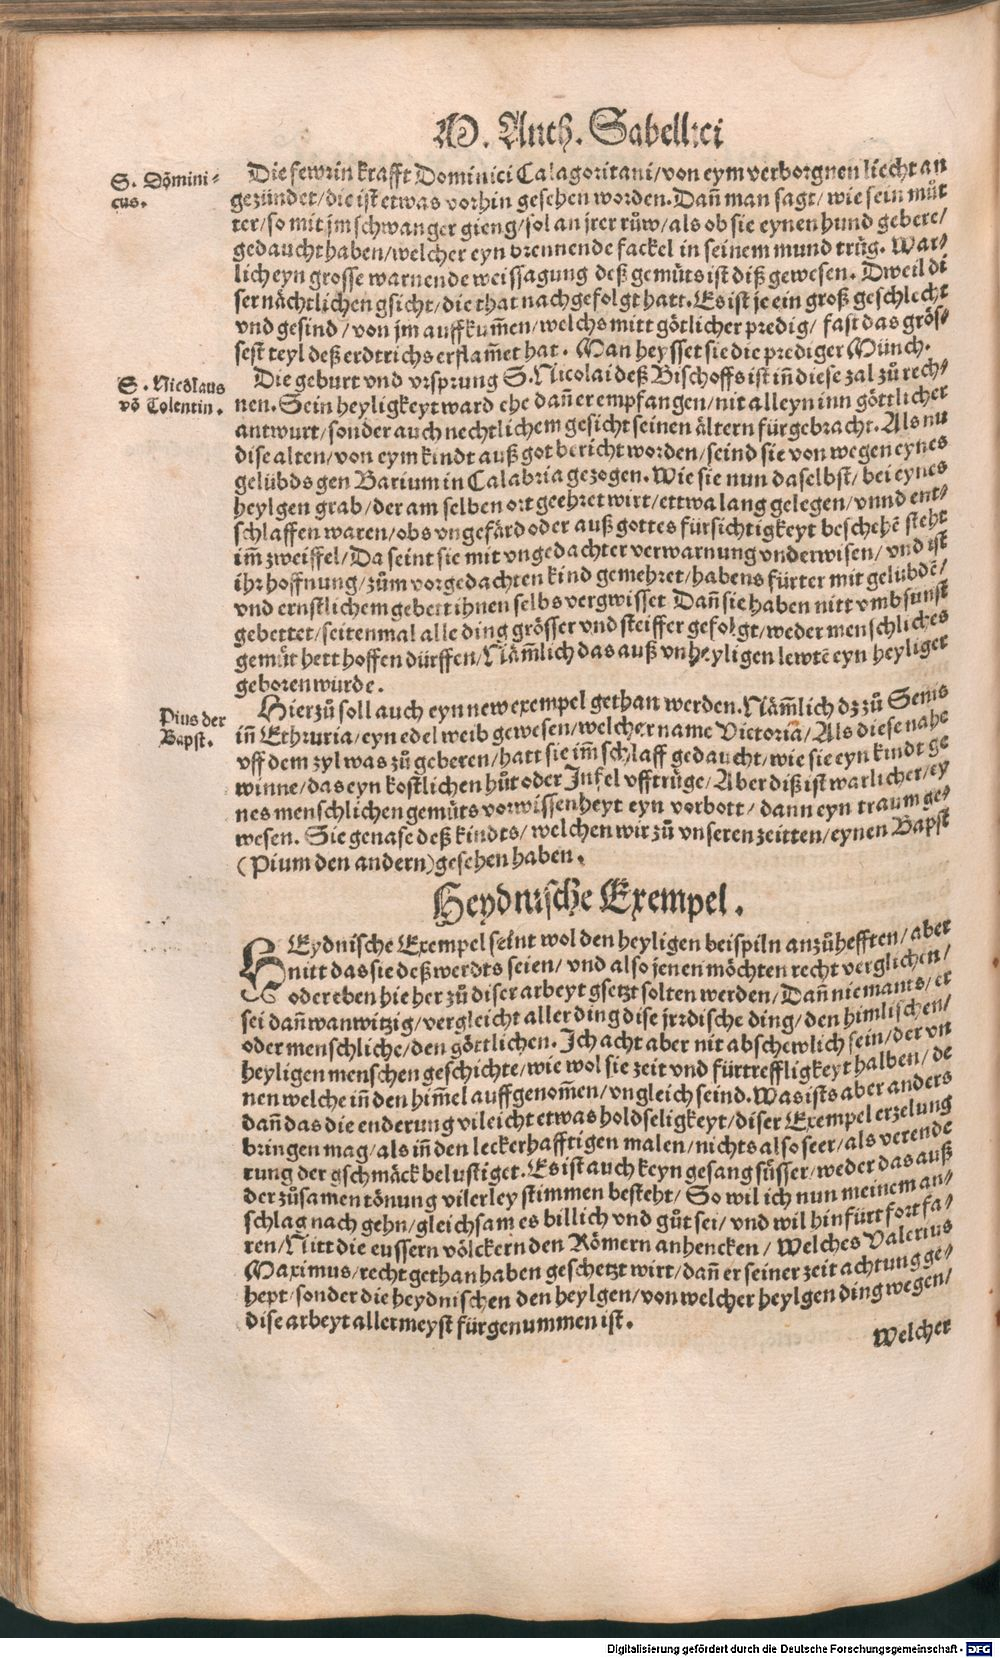 M. Anth. Sabellici
S. Domini-
cus.
Die fewrin krafft Dominici Calagoritani/ von eym verborgnen liecht an
gezündet/ die ist etwas vorhin gesehen worden. Dañ man sagt/ wie sein můt
ter/ so mit jm schwanger gieng/ sol an jrer růw/ als ob sie eynen hund gebere/
gedaucht haben/ welcher eyn brennende fackel in seinem mund trůg. War-
lich eyn grosse warnende weissagung deß gemůts ist diß gewesen. Dweil di
ser nächtlichen gsicht/ die that nachgefolgt hatt. Es ist je ein groß geschlecht
vnd gesind/ von jm auffkum̃en/ welchs mitt götlicher predig/ fast das grös-
sest teyl deß erdtrichs erflam̃et hat. Man heysset sie die prediger Münch.
S. Nicolaus
võ Tolentin.
Die geburt vnd vrsprung S. Nicolai deß Bischoffs ist iñ diese zal zů rech-
nen. Sein heyligkeyt ward ehe dañ er empfangen/ nit alleyn inn göttlicher
antwurt/ sonder auch nechtlichem gesicht seinen ältern fürgebracht. Als nu
dise alten/ von eym kindt auß got bericht worden/ seind sie von wegen eynes
gelübds gen Barium in Calabria gezogen. Wie sie nun daselbst/ bei eynes
heylgen grab/ der am selben ort geehret wirt/ ettwa lang gelegen/ vnnd ent-
schlaffen waren/ obs vngefärd oder auß gottes fürsichtigkeyt beschehẽ steht
im̃ zweiffel/ Da seint sie mit vngedachter verwarnung vnderwisen/ vnd ist
ihr hoffnung/ zům vorgedachten kind gemehret/ habens fürter mit gelübdẽ/
vnd ernstlichem gebett ihnen selbs vergwisset Dañ sie haben nitt vmbsunst
gebettet/ seitenmal alle ding grösser vnd steiffer gefolgt/ weder menschliches
gemüt hett hoffen dürffen/ Näm̃lich das auß vnheyligen lewtẽ eyn heyliger
geboren würde.
Pius der
Bapst.
Hierzů soll auch eyn new exempel gethan werden. Näm̃lich dz zů Senis
iñ Ethruria/ eyn edel weib gewesen/ welcher name Victoria/ Als diese nahe
vff dem zyl was zů geberen/ hatt sie im̃ schlaff gedaucht/ wie sie eyn kindt ge
winne/ das eyn kostlichen hůt oder Jnfel vfftrüge/ Aber diß ist warlicher/ ey
nes menschlichen gemůts vorwissenheyt eyn vorbott/ dann eyn traum ge-
wesen. Sie genase deß kindts/ welchen wir zů vnseren zeitten/ eynen Bapst
(Pium den andern) gesehen haben.
Heydnische Exempel.
HEydnische Exempel seint wol den heyligen beispiln anzůhefften/ aber
nitt das sie deß werdts seien/ vnd also jenen möchten recht verglichen/
oder eben hie her zů diser arbeyt gsetzt solten werden/ Dañ niemants/ er
sei dañ wanwitzig/ vergleicht aller ding dise jrrdische ding/ den himlischen/
oder menschliche/ den göttlichen. Ich acht aber nit abschewlich sein/ der vn
heyligen menschen geschichte/ wie wol sie zeit vnd fürtreffligkeyt halben/ de
nen welche iñ den him̃el auffgenom̃en/ vngleich seind. Was ists aber anders
dañ das die enderung vileicht etwas holdseligkeyt/ diser Exempel erzelung
bringen mag/ als iñ den leckerhafftigen malen/ nichts also seer/ als verende
rung der gschmäck belustiget. Es ist auch keyn gesang süsser/ weder das auß
der zůsamen tönung vilerley stimmen besteht/ So wil ich nun meinem an-
schlag nach gehn/ gleichsam es billich vnd gůt sei/ vnd wil hinfürt fort fa-
ren/ Nitt die eussern völckern den Römern anhencken/ Welches Valerius
Maximus/ recht gethan haben geschetzt wirt/ dañ er seiner zeit achtung ge-
hept/ sonder die heydnischen den heylgen/ von welcher heylgen ding wegen/
dise arbeyt allermeyst fürgenummen ist.
Welcher
Digitalisierung gefördert durch die Deutsche Forschungsgemeinschaft - DFG